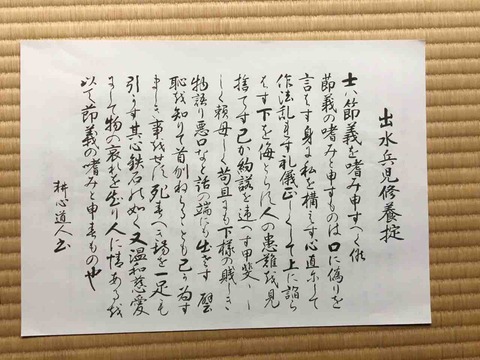 出水兵児修養掟
士ハ節義を嗜み申すへく候
節義の嗜みと申すものは口に偽りを
言はす身に私を構へす心直にして
作法乱れす礼儀正しくして上に諂ら
はす下を侮とらす人の患難を見
捨てす己か約諾を違へす甲斐〱
しく頼母しく苟且にも下様の賤しき
物語り悪口なと話の端にも出さす譬
恥を知りて首刎ねらるゝとも己か為す
ましき事をせす死すへき場を一足も
引かす其心鉄石の如く又温和慈愛
にして物の哀れを知り人に情あるを
以て節義の嗜みと申すもの也
耕心道人書